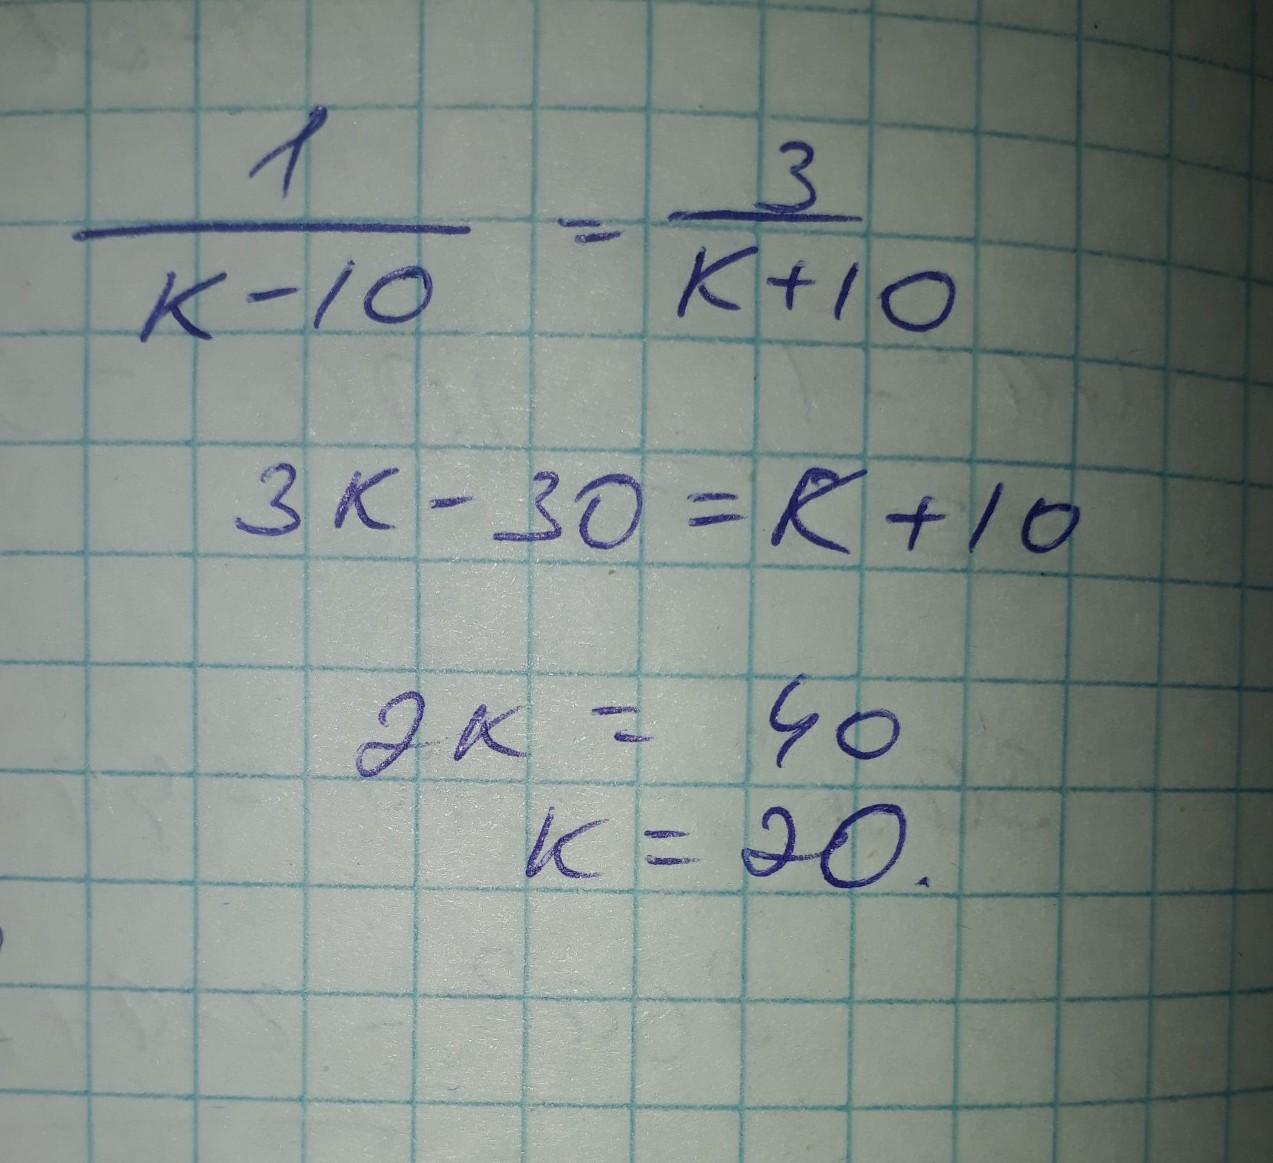 1/(K-10) = 3/(K+10)
3K - 30 = K + 10
2K = 40
K = 20.